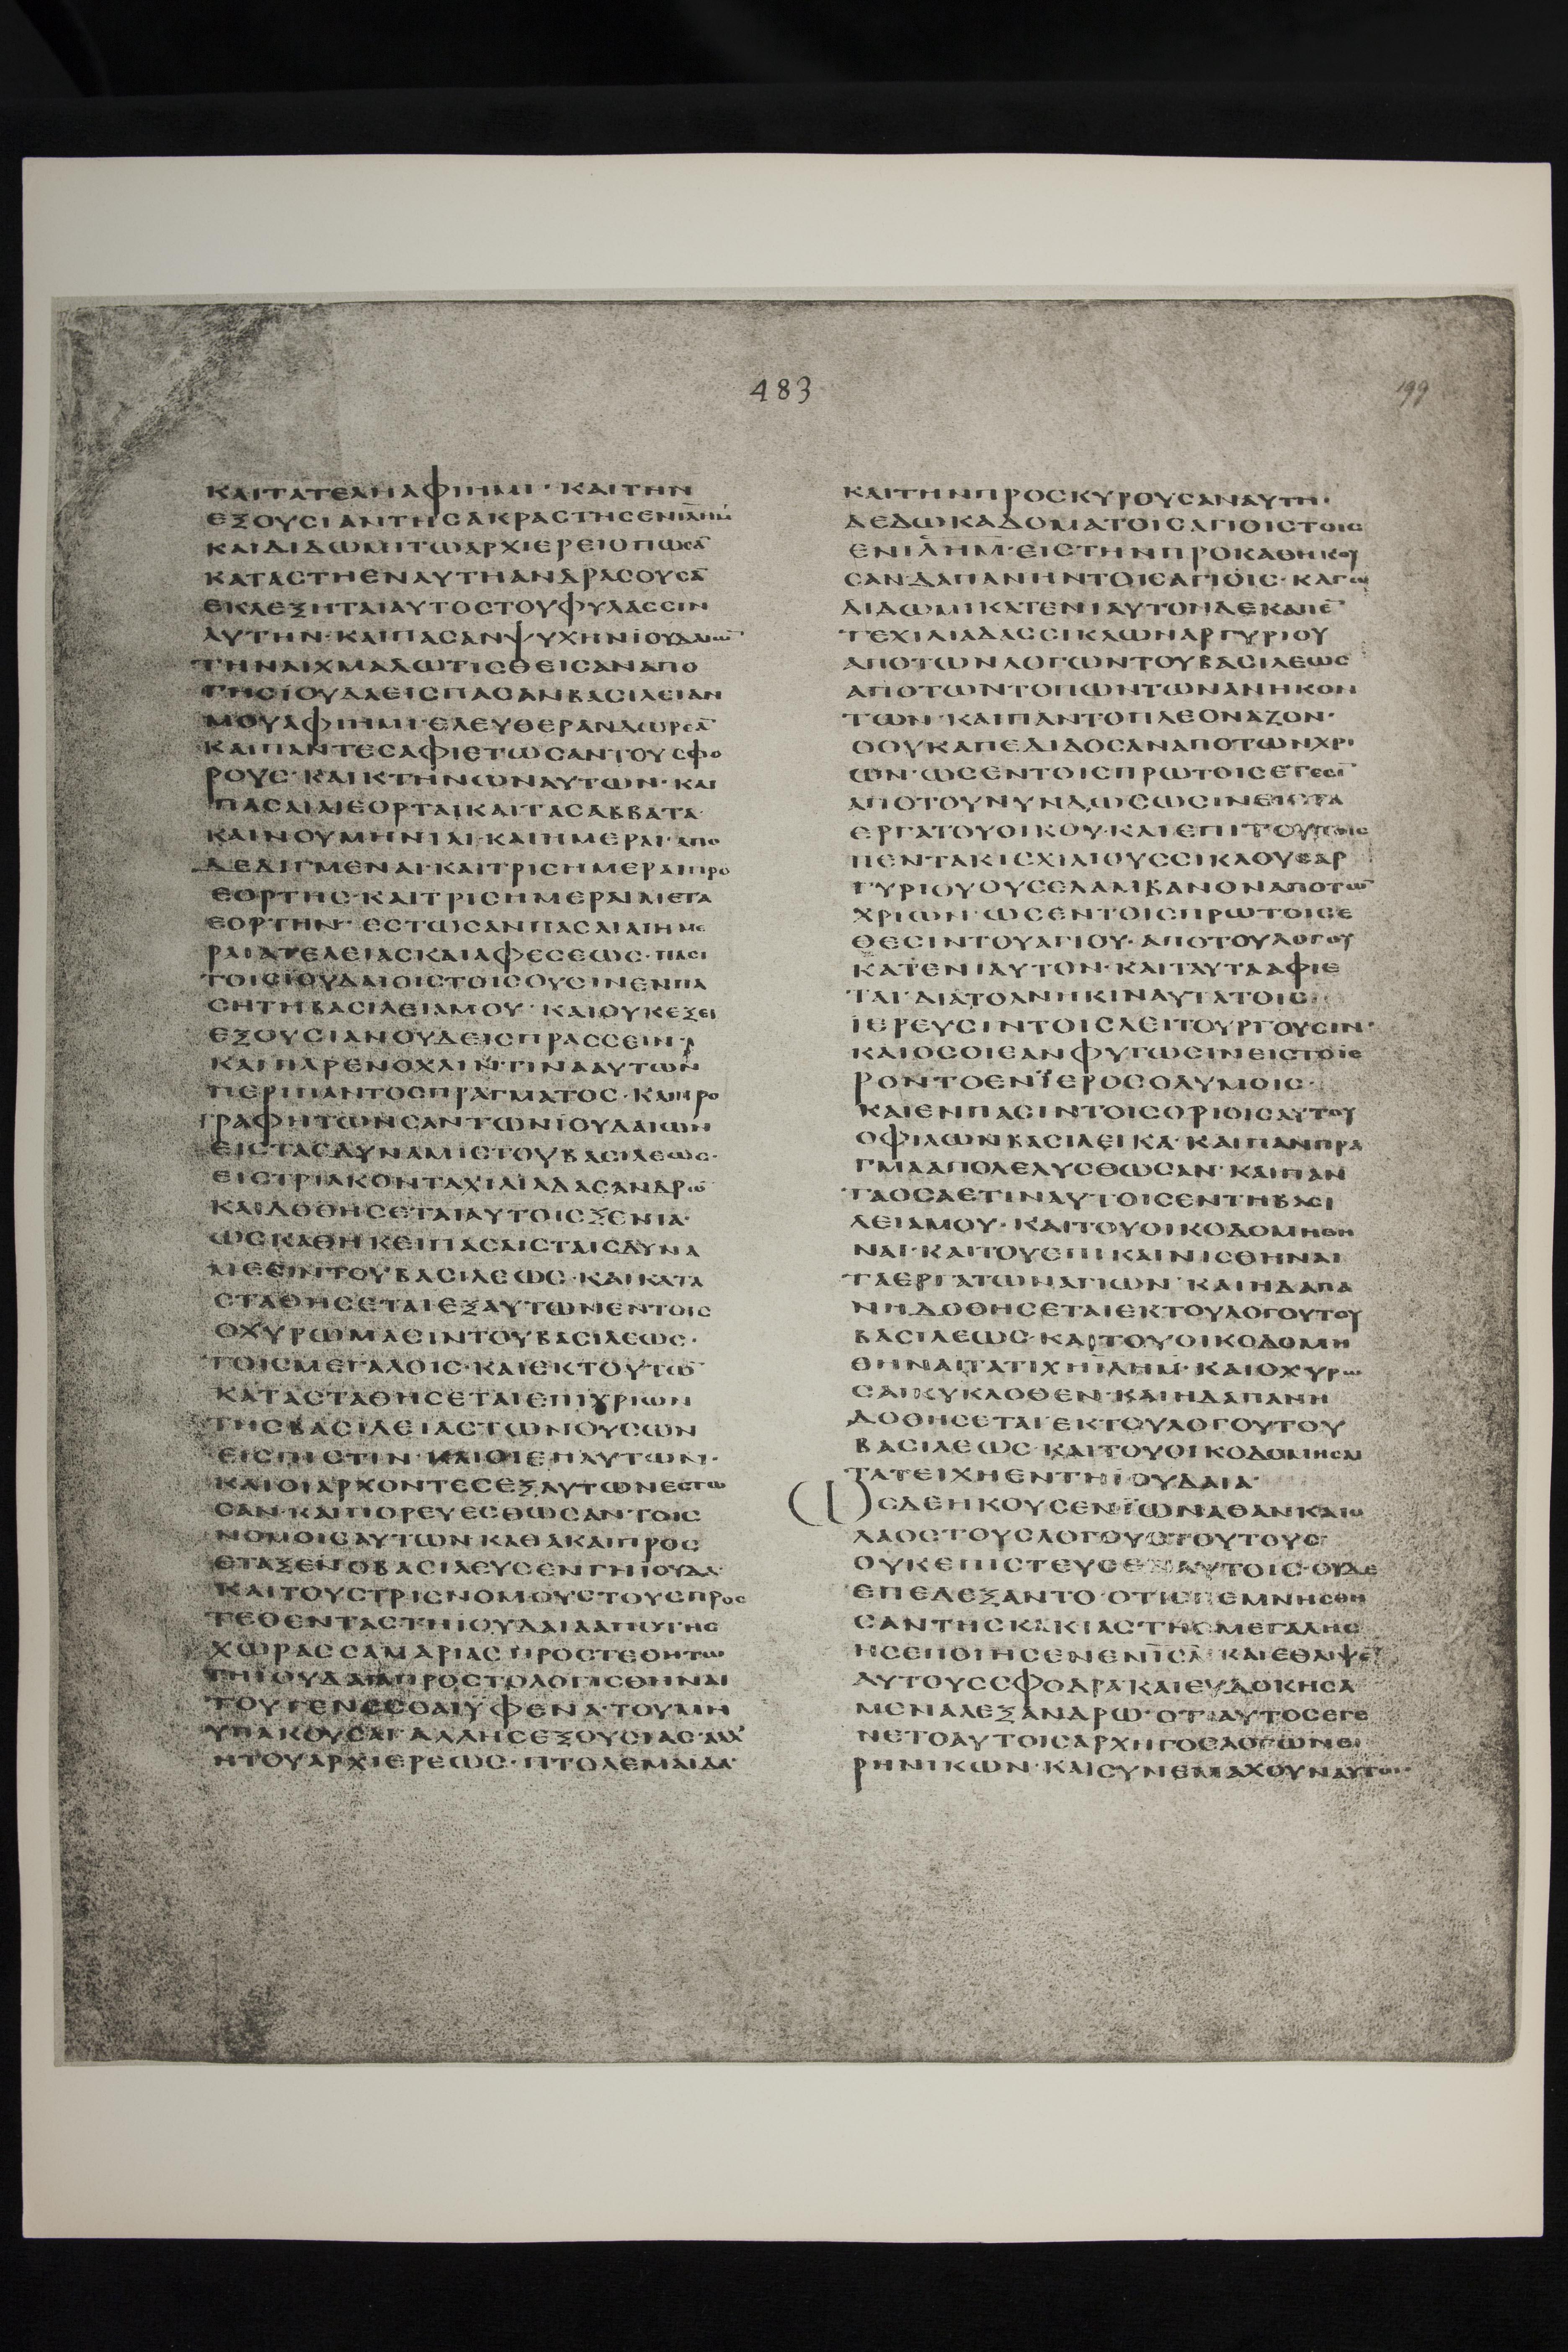 483
199
ΚΑΙΤΑΤΕΛΗΑΦΙΗΜΙ · ΚΑΙΤΗΝ
ΕΞΟΥΣΙΑΝΤΗΣΑΚΡΑΣΤΗΣΕΝΙΛΗΜ
ΚΑΙΔΙΔΩΜΙΤΩΑΡΧΙΕΡΕΙΟΠΩΣΑ̅
ΚΑΤΑΣΤΗΕΝΑΥΤΗΑΝΔΡΑΣΟΥΣΑ̅
ΕΚΛΕΞΗΤΑΙΑΥΤΟΣΤΟΥΦΥΛΑΣΣΙΝ
ΑΥΤΗΝ·ΚΑΙΠΑΣΑΝΨΥΧΗΝΙΟΥΔΑΙΩ̅
ΤΗΝΑΙΧΜΑΛΩΤΙΣΘΕΙΣΑΝΑΠΟ
ΓΗΣΙΟΥΔΑΕΙΣΠΑΣΑΝΒΑΣΙΛΕΙΑΝ
ΜΟΥΑΦΙΗΜΙΕΛΕΥΘΕΡΑΝΔΩΡΕΑ̅
ΚΑΙΠΑΝΤΕΣΑΦΙΕΤΩΣΑΝΤΟΥΣΦΟ
ΡΟΥΣ·ΚΑΙΚΤΗΝΩΝΑΥΤΩΝ·ΚΑΙ
ΠΑΣΑΙΑΙΕΟΡΤΑΙΚΑΙΤΑΣΑΒΒΑΤΑ·
ΚΑΙΝΟΥΜΗΝΙΑΙ·ΚΑΙΗΜΕΡΑΙ·ΑΠΟ
ΔΕΔΙΓΜΕΝΑΙ·ΚΑΙΤΡΙΣΗΜΕΡΑΙΠΡΟ
ΕΟΡΤΗΣ·ΚΑΙΤΡΙΣΗΜΕΡΑΙΜΕΤΑ
ΕΟΡΤΗΝ· ΕΣΤΩΣΑΝΠΑΣΑΙΑΙΗΜΕ
ΡΑΙΑΤΕΛΕΙΑΣΚΑΙΑΦΕΣΕΩΣ·ΠΑΣΙ
ΤΟΙΣΙΟΥΔΑΙΟΙΣΤΟΙΣΟΥΣΙΝΕΝΠΑ
ΣΗΤΗΒΑΣΙΛΕΙΑΜΟΥ· ΚΑΙΟΥΚΕΞΕΙ
ΕΞΟΥΣΙΑΝΟΥΔΕΙΣΠΡΑΣΣΕΙΝ·
ΚΑΙΠΑΡΕΝΟΧΛΙΝ·ΤΙΝΑΑΥΤΩΝ
ΠΕΡΙΠΑΝΤΟΣΠΡΑΓΜΑΤΟΣ·ΚΑΙΠΡΟ
ΓΡΑΦΗΤΩΝΣΑΝΤΩΝΙΟΥΔΑΙΩΝ
ΕΙΣΤΑΣΔΥΝΑΜΙΣΤΟΥΒΑΣΙΛΕΩΣ·
ΕΙΣΤΡΙΑΚΟΝΤΑΧΙΛΙΑΔΑΣΑΝΔΡΩ̅
ΚΑΙΔΟΘΗΣΕΤΑΙΑΥΤΟΙΣΞΕΝΙΑ·
ΩΣΚΑΘΗΚΕΙΠΑΣΑΙΣΤΑΙΣΔΥΝΑ
ΜΕΣΙΝΤΟΥΒΑΣΙΛΕΩΣ·ΚΑΙΚΑΤΑ
ΣΤΑΘΗΣΕΤΑΙΕΞΑΥΤΩΝΕΝΤΟΙΣ
ΟΧΥΡΩΜΑΣΙΝΤΟΥΒΑΣΙΛΕΩΣ·
ΤΟΙΣΜΕΓΑΛΟΙΣ·ΚΑΙΕΚΤΟΥΤΩ̅
ΚΑΤΑΣΤΑΘΗΣΕΤΑΙΕΠΙΧΡΙΩΝ
ΤΗΣΒΑΣΙΛΕΙΑΣΤΩΝΟΥΣΩΝ
ΕΙΣΠΙΣΤΙΝ·ΚΑΙΟΙΕΠΑΥΤΩΝ·
ΚΑΙΟΙΑΡΧΟΝΤΕΣΕΞΑΥΤΩΝΕΣΤΩ
ΣΑΝ·ΚΑΙΠΟΡΕΥΕΣΘΩΣΑΝ·ΤΟΙΣ
ΝΟΜΟΙΣΑΥΤΩΝ·ΚΑΘΑΚΑΙΠΡΟΣ
ΕΤΑΞΕΝΟΒΑΣΙΛΕΥΣΕΝΓΗΙΟΥΔΑ·
ΚΑΙΤΟΥΣΤΡΙΣΝΟΜΟΥΣΤΟΥΣΠΡΟΣ
ΤΕΘΕΝΤΑΣΤΗΙΟΥΔΑΙΑΑΠΟΤΗΣ
ΧΩΡΑΣΣΑΜΑΡΙΑΣΠΡΟΣΤΕΘΗΤΩ
ΤΗΙΟΥΔΑΙΑΠΡΟΣΤΟΛΟΓΙΣΘΗΝΑΙ
ΤΟΥΓΕΝΕΣΘΑΙΥΦΕΝΑ·ΤΟΥΜΗ
ΥΠΑΚΟΥΣΑΙ·ΑΛΛΗΣΕΞΟΥΣΙΑΣ·ΑΛΛ
ΗΤΟΥΑΡΧΙΕΡΕΩΣ·ΠΤΟΛΕΜΑΙΔΑ·
ΚΑΙΤΗΝΠΡΟΣΚΥΡΟΥΣΑΝΑΥΤΗ·
ΔΕΔΩΚΑΔΟΜΑΤΟΙΣΑΓΙΟΙΣΤΟΙΣ
ΕΝΙΛΗΜ·ΕΙΣΤΗΝΠΡΟΚΑΘΗΚΟΥ
ΣΑΝ·ΔΑΠΑΝΗΝΤΟΙΣΑΓΙΟΙΣ·ΚΑΓΩ
ΔΙΔΩΜΙΚΑΤΕΝΙΑΥΤΟΝΔΕΚΑΠΕ̅
ΤΕΧΙΛΙΑΔΑΣΣΙΚΛΩΝΑΡΓΥΡΙΟΥ
ΑΠΟΤΩΝΛΟΓΩΝΤΟΥΒΑΣΙΛΕΩΣ
ΑΠΟΤΩΝΤΟΠΩΝΤΩΝΑΝΗΚΟΝ
ΤΩΝ·ΚΑΙΠΑΝΤΟΠΛΕΟΝΑΖΟΝ·
ΟΟΥΚΑΠΕΔΙΔΟΣΑΝΑΠΟΤΩΝΧΡΙ
ΩΝ·ΩΣΕΝΤΟΙΣΠΡΩΤΟΙΣΕΤΕΣΙ̅
ΑΠΟΤΟΥΝΥΝΔΩΣΩΣΙΝΕΙΣΤΑ
ΕΡΓΑΤΟΥΟΙΚΟΥ·ΚΑΙΕΠΙΤΟΥΤΟΙΣ
ΠΕΝΤΑΚΙΣΧΙΛΙΟΥΣΣΙΚΛΟΥΣΑΡ
ΓΥΡΙΟΥΟΥΣΕΛΑΜΒΑΝΟΝΑΠΟΤΩ̅
ΧΡΙΩΝ·ΩΣΕΝΤΟΙΣΠΡΩΤΟΙΣΕ
ΘΕΣΙΝΤΟΥΑΓΙΟΥ·ΑΠΟΤΟΥΛΟΓΟΥ
ΚΑΤΕΝΙΑΥΤΟΝ·ΚΑΙΤΑΥΤΑΑΦΙΕ
ΤΑΙ·ΔΙΑΤΟΑΝΗΚΙΝΑΥΤΑΤΟΙΣ
ΙΕΡΕΥΣΙΝΤΟΙΣΛΕΙΤΟΥΡΓΟΥΣΙΝ·
ΚΑΙΟΣΟΙΕΑΝΦΥΓΩΣΙΝΕΙΣΤΟΙΕ
ΡΟΝΤΟΕΝΙΕΡΟΣΟΛΥΜΟΙΣ·
ΚΑΙΕΝΠΑΣΙΝΤΟΙΣΟΡΙΟΙΣΑΥΤΟΥ
ΟΦΙΛΩΝΒΑΣΙΛΕΙΚΑ·ΚΑΙΠΑΝΠΡΑ
ΓΜΑΑΠΟΛΕΛΥΣΘΩΣΑΝ·ΚΑΙΠΑΝ
ΤΑΟΣΑΕΤΙΝΑΥΤΟΙΣΕΝΤΗΒΑΣΙ
ΛΕΙΑΜΟΥ·ΚΑΙΤΟΥΟΙΚΟΔΟΜΗΘΗ
ΝΑΙ·ΚΑΙΤΟΥΕΠΙΚΑΙΝΙΣΘΗΝΑΙ
ΤΑΕΡΓΑΤΩΝΑΓΙΩΝ·ΚΑΙΗΔΑΠΑ
ΝΗΔΟΘΗΣΕΤΑΙΕΚΤΟΥΛΟΓΟΥΤΟΥ
ΒΑΣΙΛΕΩΣ·ΚΑΙΤΟΥΟΙΚΟΔΟΜΗ
ΘΗΝΑΙΤΑΤΙΧΗΙΛΗΜ·ΚΑΙΟΧΥΡΩ
ΣΑΙΚΥΚΛΟΘΕΝ·ΚΑΙΗΔΑΠΑΝΗ
ΔΟΘΗΣΕΤΑΙΕΚΤΟΥΛΟΓΟΥΤΟΥ
ΒΑΣΙΛΕΩΣ·ΚΑΙΤΟΥΟΙΚΟΔΟΜΗΣΑΙ
ΤΑΤΕΙΧΗΕΝΤΗΙΟΥΔΑΙΑ·
ΩΣΔΕΗΚΟΥΣΕΝΙΩΝΑΘΑΝΚΑΙΟ
ΛΑΟΣΤΟΥΣΛΟΓΟΥΣΤΟΥΤΟΥΣ
ΟΥΚΕΠΙΣΤΕΥΣΕΝΑΥΤΟΙΣ·ΟΥΔΕ
ΕΠΕΔΕΞΑΝΤΟ·ΟΤΙΕΠΕΜΝΗΣΘΗ
ΣΑΝΤΗΣΚΑΚΙΑΣΤΗΣΜΕΓΑΛΗΣ
ΗΣΕΠΟΙΗΣΕΝΕΝΙΣΛ·ΚΑΙΕΘΛΙΨΕ̅
ΑΥΤΟΥΣΣΦΟΔΡΑΚΑΙΕΥΔΟΚΗΣΑ
ΜΕΝΑΛΕΞΑΝΔΡΩ·ΟΤΙΑΥΤΟΣΕΓΕ
ΝΕΤΟΑΥΤΟΙΣΑΡΧΗΓΟΣΛΟΓΩΝΕΙ
ΡΗΝΙΚΩΝ·ΚΑΙΣΥΝΕΜΑΧΟΥΝΑΥΤΩ